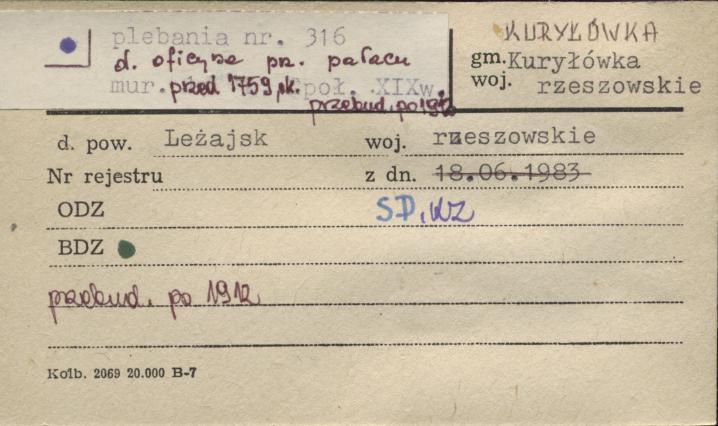 plebania nr. 316
d. oficyna prz. pałacu
mur. przed 1759 r. poł. XIXw.
przebud. po 1912
KURYŁÓWKA
gm. Kuryłówka
woj. rzeszowskie
d. pow. Leżajsk woj. rzeszowskie
Nr rejestru z dn. 18.06.1983
ODZ SD, WZ
BDZ
przebud. po 1912
Kolb. 2069 20.000 B-7